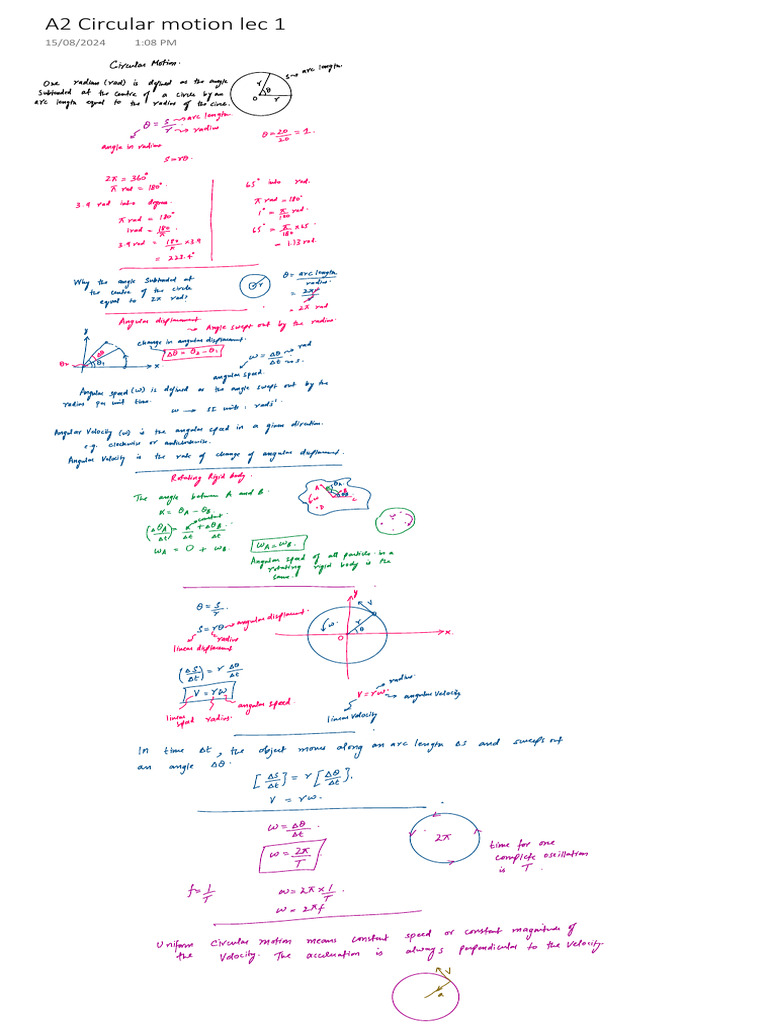 A2 Circular motion lec 1
15/08/2024 1:08 PM
Circular Motion.
One radian (rad) is defined as the angle
subtended at the centre of a circle by an
arc length equal to the radius of the circle.
s → arc length
r
θ
O r
θ = s/r → arc length
→ radius
angle in radian
θ = 20/20 = 1.
s = rθ.
2π = 360°
π rad = 180°
3.9 rad into degree
π rad = 180°
1 rad = 180/π
3.9 rad = 180/π × 3.9
= 223.4°
65° into rad.
π rad = 180°
1° = π/180 rad.
65° = π/180 × 65
= 1.13 rad.
Why the angle subtended at
the centre of the circle
equal to 2π rad?
r
θ = arc length/radius
= 2πr/r
= 2π rad
Angular displacement
→ Angle swept out by the radius.
y
change in angular displacement.
Δθ = θ₂ - θ₁
θ₂
θ
θ₁
x
ω = Δθ/Δt → rad
→ s.
angular speed.
Angular speed (ω) is defined as the angle swept out by the
radius per unit time.
ω → SI units : rad s⁻¹
Angular Velocity (ω) is the angular speed in a given direction.
e.g. clockwise or anticlockwise.
Angular Velocity is the rate of change of angular displacement.
Rotating Rigid body.
The angle between A and B
K = θA - θB
constant
(ΔθA/Δt) = K/Δt + ΔθB/Δt
ωA = 0 + ωB
ωA = ωB
Angular speed of all particle in a
rotating rigid body is the
same.
θ = s/r
s = rθ → angular displacement.
radius
linear displacement
y
V
ω
r
θ
O
x.
(Δs/Δt) = r Δθ/Δt
V = rω
angular speed.
linear speed radius.
radius
V = rω → angular velocity
linear velocity
In time Δt, the object moves along an arc length Δs and sweeps out
an angle Δθ.
[Δs/Δt] = r [Δθ/Δt].
V = rω.
ω = Δθ/Δt
ω = 2π/T
2π
time for one
complete oscillation
is T.
f = 1/T
ω = 2π × 1/T
ω = 2πf
Uniform circular motion means constant speed or constant magnitude of
the velocity. The acceleration is always perpendicular to the velocity.
V
a